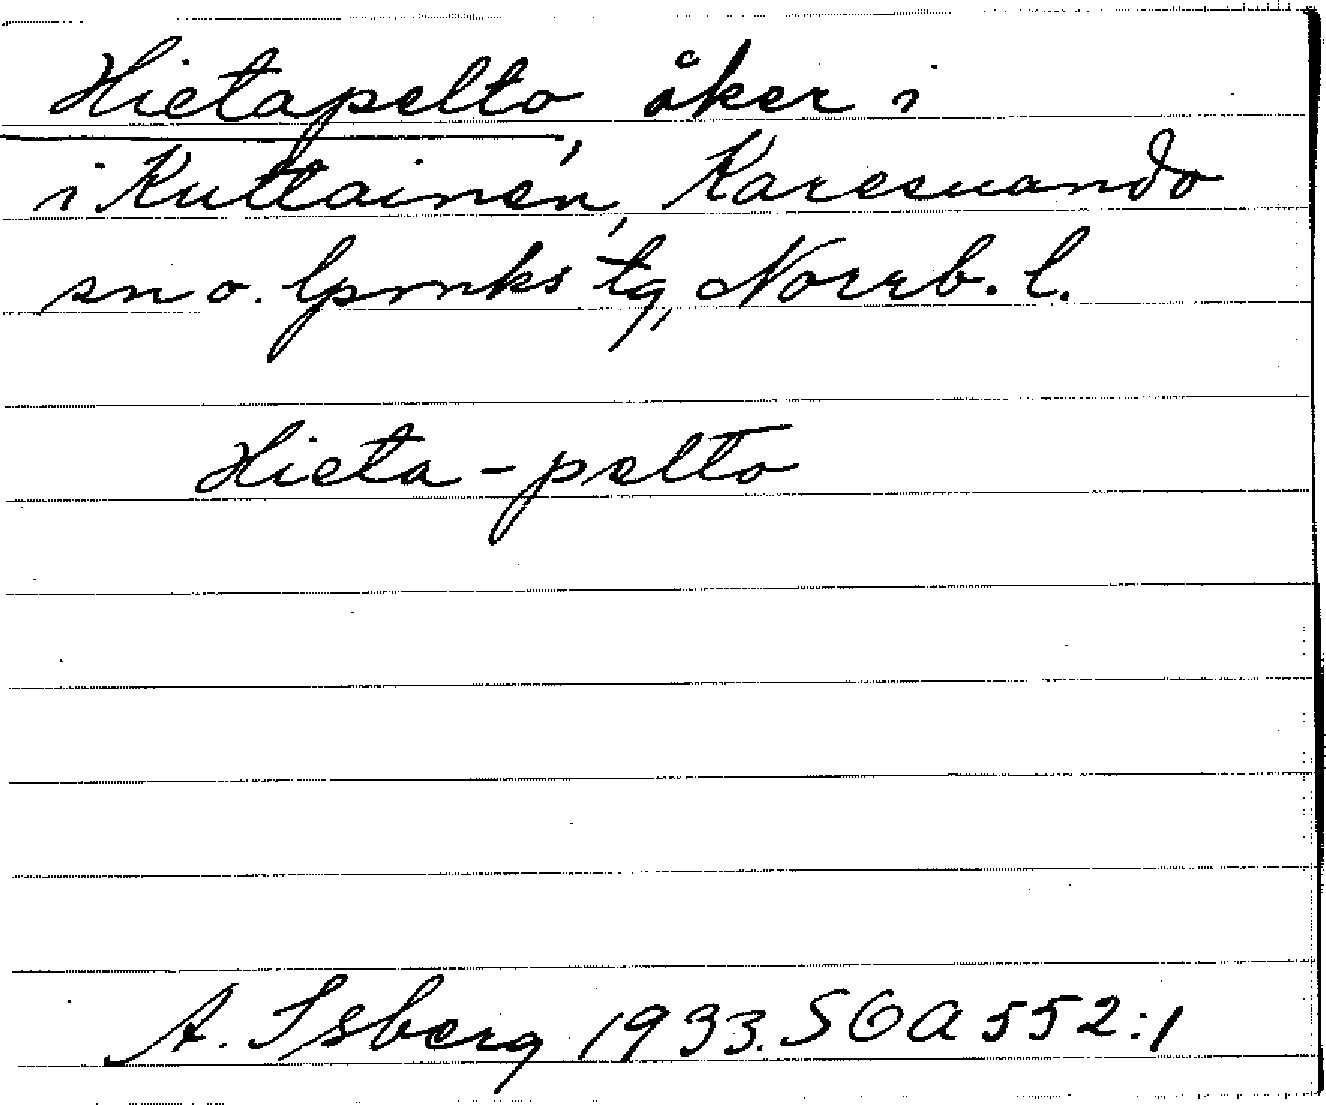 Hietapelto, åker i
i Kuttainen, Karesuando
sn o. lpmks tg, Norrb. l.
Hieta-pelto
A. Isberg 1933. SOA 552:1